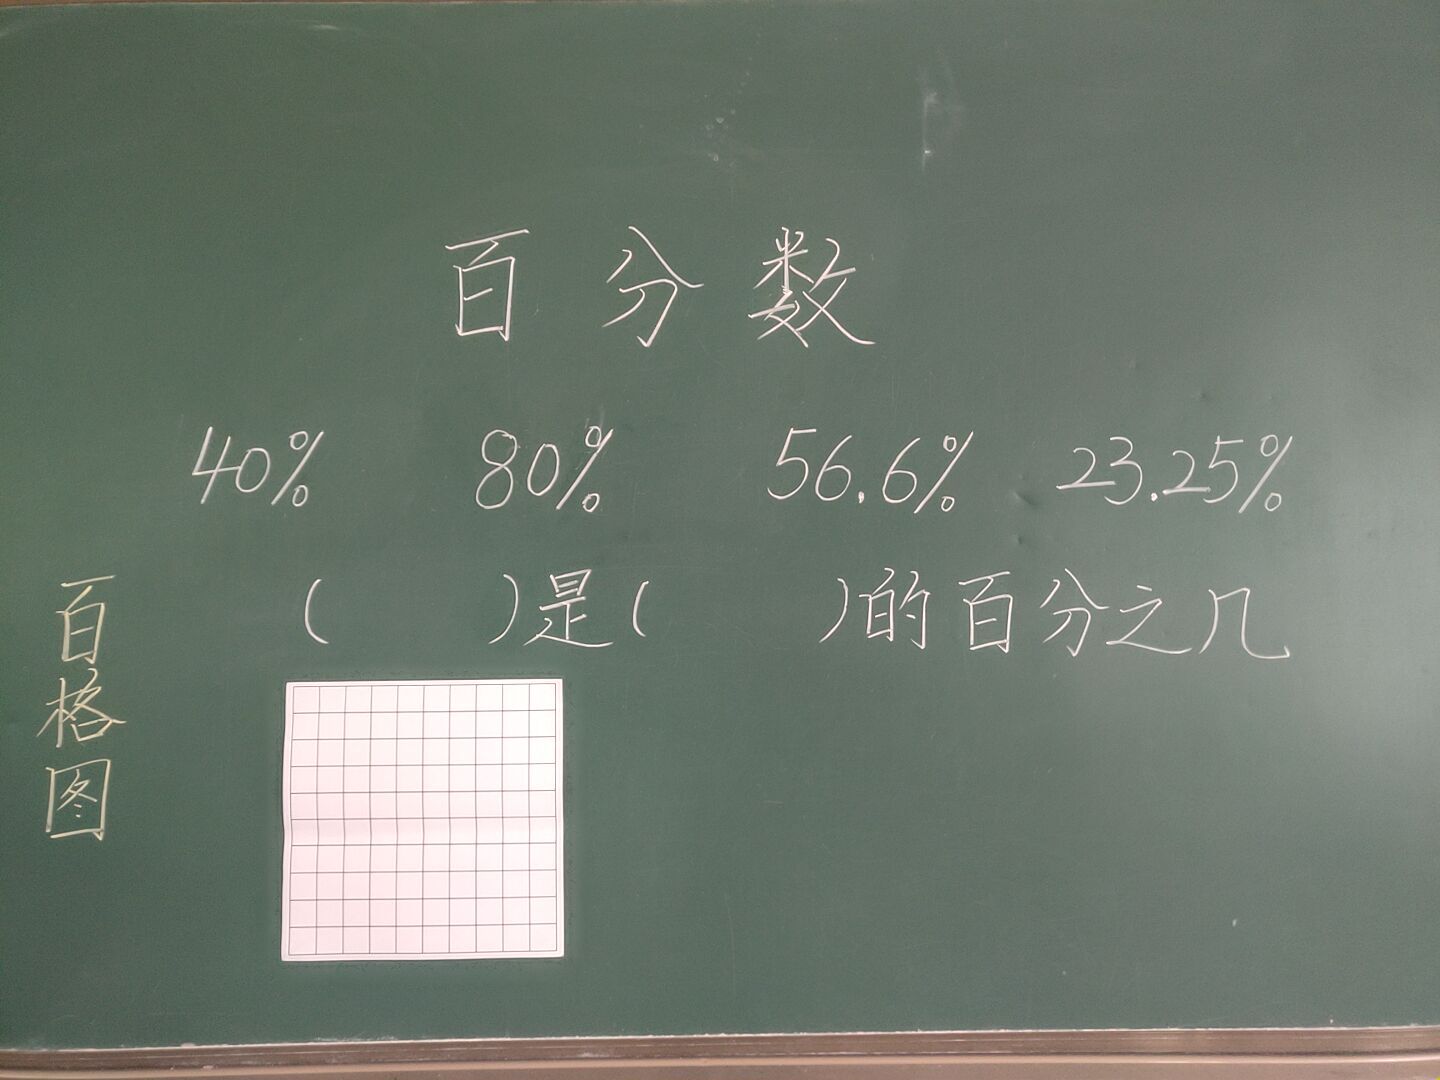 百分数
40% 80% 56.6% 23.25%
( )是( )的百分之几
百格图